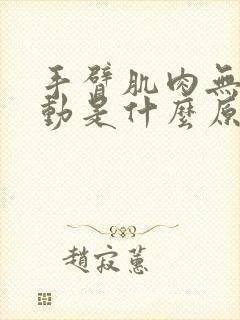 手臂肌肉無
動是什麼原
趙寂蕙